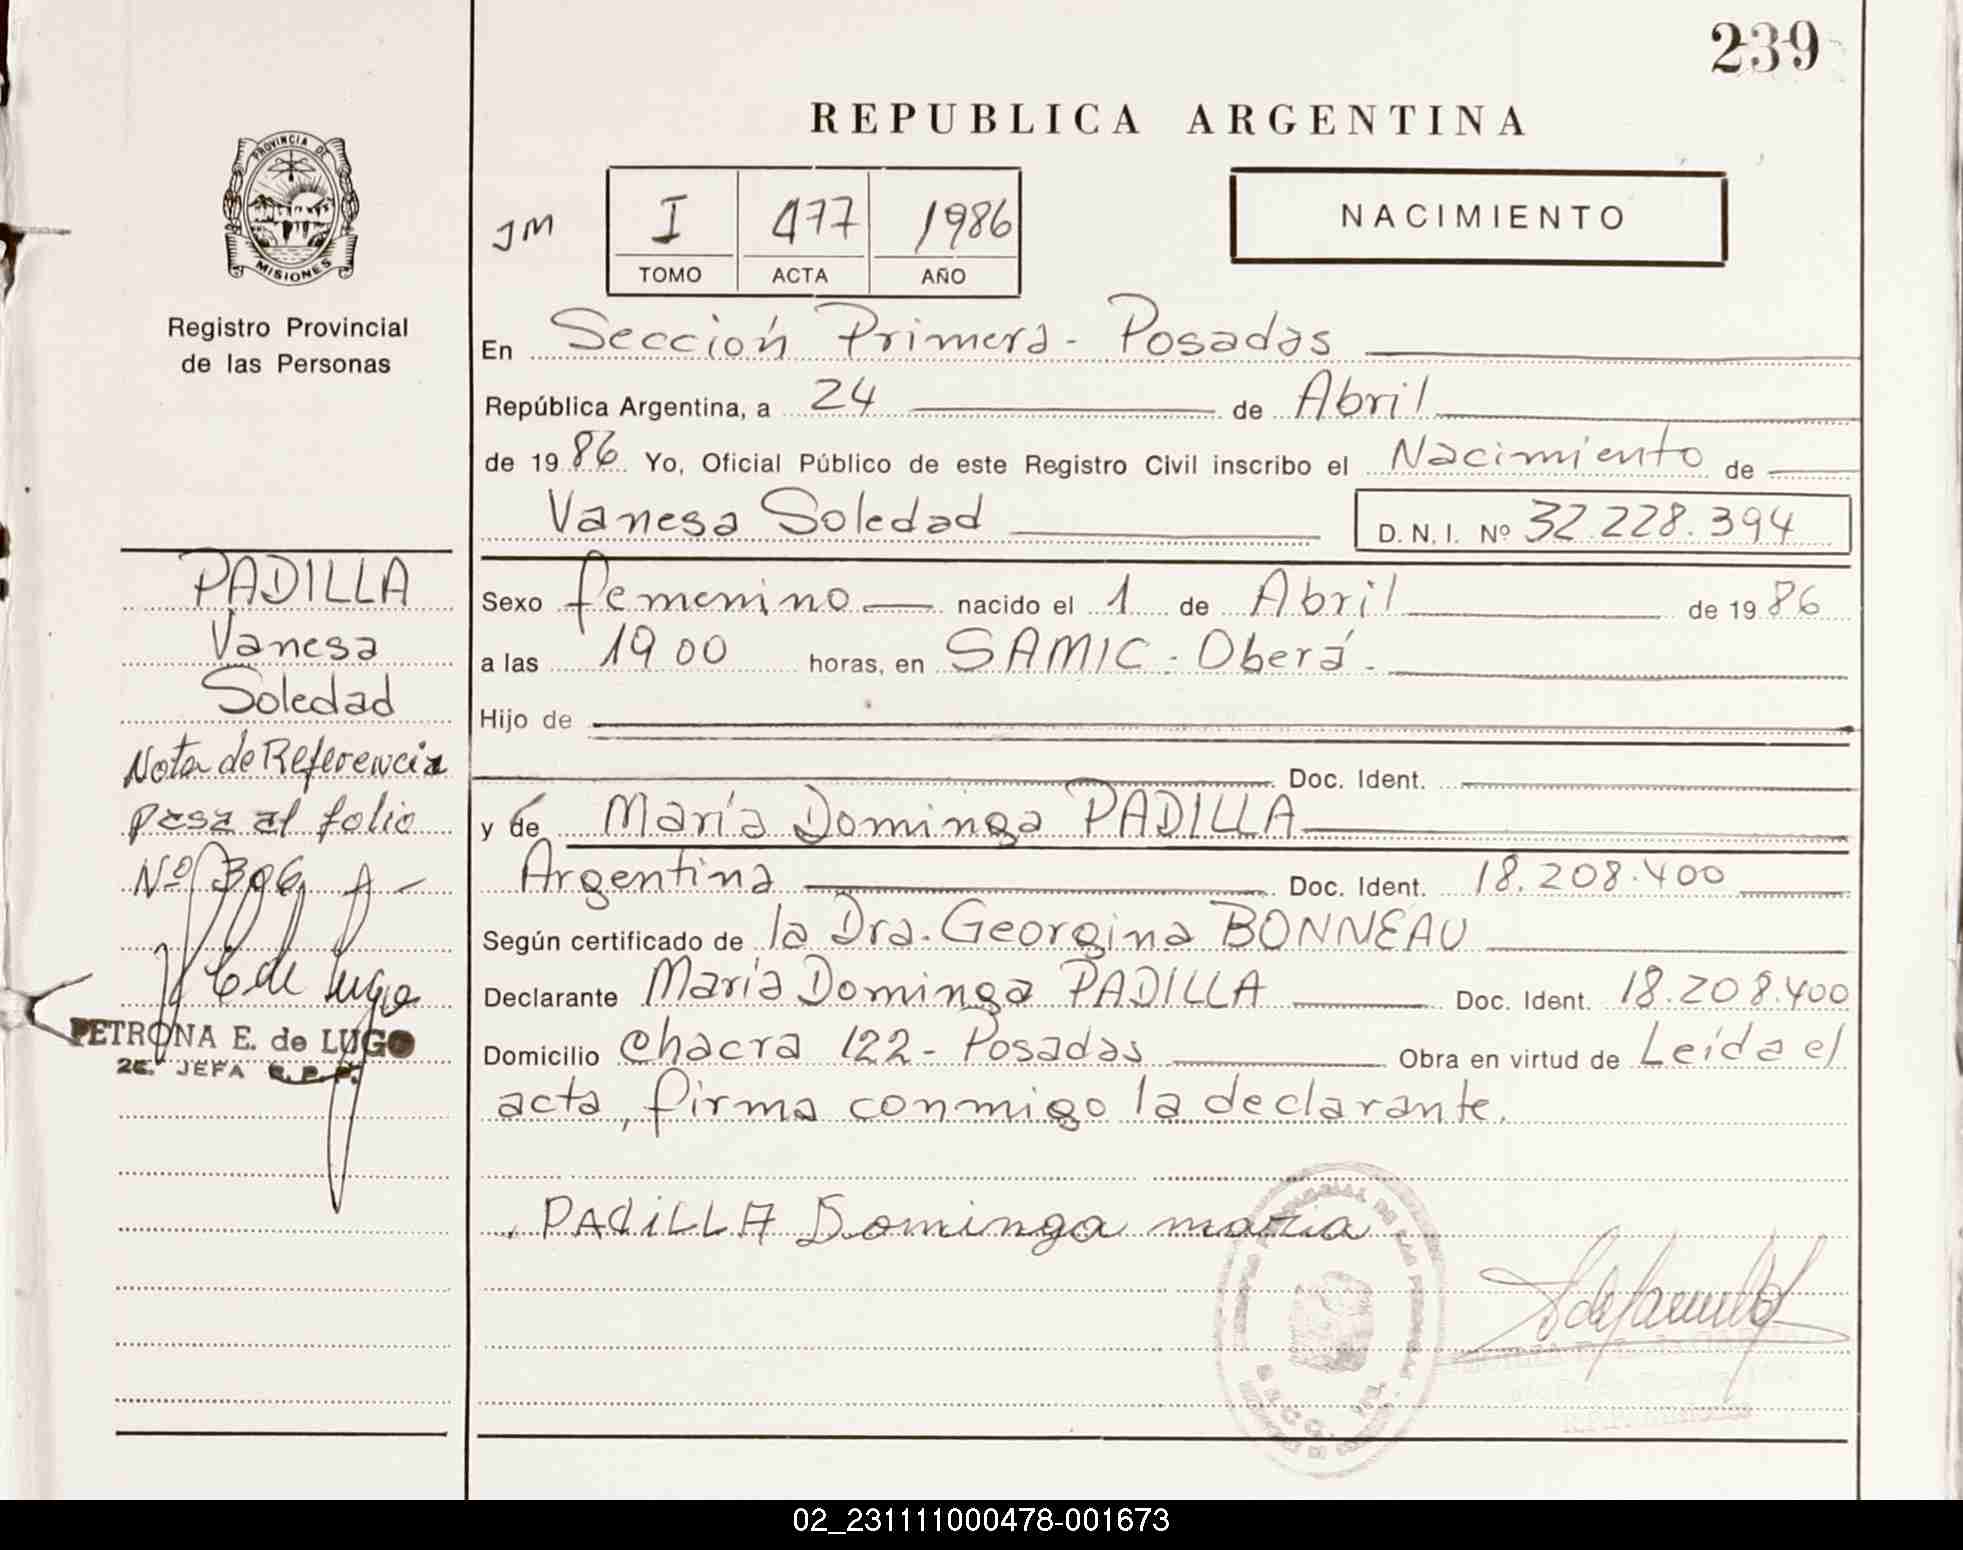 239
REPUBLICA ARGENTINA
PROVINCIA DE
MISIONES
Registro Provincial
de las Personas
JM
I 477 1986
TOMO ACTA AÑO
NACIMIENTO
En Sección Primera - Posadas
República Argentina, a 24 de Abril
de 1986 Yo, Oficial Público de este Registro Civil inscribo el Nacimiento de
Vanesa Soledad D.N.I. Nº 32.228.394
PADILLA
Vanesa
Soledad
Nota de Referencia
pasa al folio
Nº 396 A -
PETRONA E. de LUGO
2E. JEFA R.P.P.
Sexo femenino nacido el 1 de Abril de 1986
a las 19 00 horas, en SAMIC - Oberá -
Hijo de
Doc. Ident.
y de María Dominga PADILLA
Argentina Doc. Ident. 18.208.400
Según certificado de la Dra. Georgina BONNEAU
Declarante María Dominga PADILLA Doc. Ident. 18.208.400
Domicilio Chacra 122 - Posadas Obra en virtud de Leída el
acta, firma conmigo la declarante.
PAdiLLA Dominga maria
02_231111000478-001673